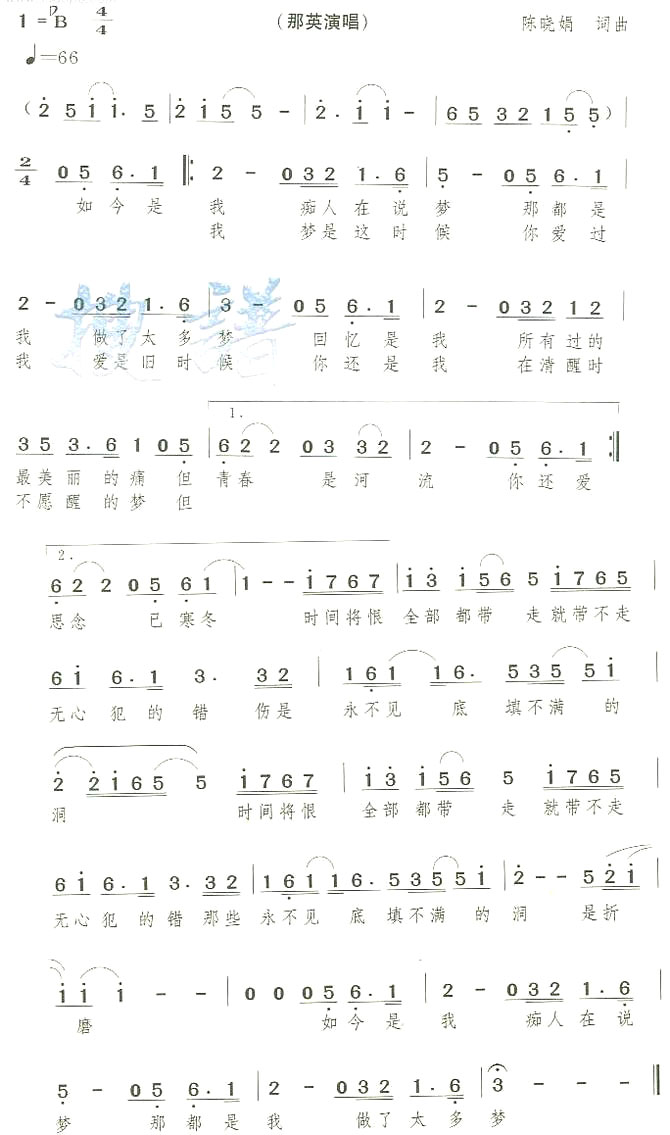 1=♭B 4/4 (那英演唱) 陈晓娟 词曲
♩=66
(2̇ 5 1̇ 1̇. 5 | 2̇ 1̇ 5 5 - | 2̇. 1̇ 1̇ - | 6 5 3 2 1 5̣ 5̣)
2/4 0 5̣ 6̣. 1 ‖: 2 - 0 3 2 1. 6̣ | 5̣ - 0 5̣ 6̣. 1 |
如今是 我 痴人在说 梦 那都是
我 梦是这时 候 你爱过
2 - 0 3 2 1. 6̣ | 3 - 0 5 6̣. 1 | 2 - 0 3 2 1 2 |
我 做了太多 梦 回忆是 我 所有过的
我 爱是旧时 候 你还是 我 在清醒时
1.
3 5 3. 6̣ 1 0 5̣ | 6̣ 2 2 0 3 3 2 | 2 - 0 5̣ 6̣. 1 :‖
最美丽的痛 但 青春 是河 流 你还爱
不愿醒的梦 但
2.
6̣ 2 2 0 5̣ 6̣ 1 | 1 - - 1̇ 7 6 7 | 1̇ 3̇ 1̇ 5 6 5 1̇ 7 6 5 |
思念 已寒冬 时间将恨 全部都带 走就带不走
6 1̇ 6. 1 3. 3 2 | 1 6̣ 1 1 6. 5 3 5 5 1̇ |
无心犯的错 伤是 永不见 底 填不满的
2̇ 2̇ 1̇ 6 5 5 1̇ 7 6 7 | 1̇ 3̇ 1̇ 5 6 5 1̇ 7 6 5 |
洞 时间将恨 全部都带 走 就带不走
6 1̇ 6. 1 3. 3 2 | 1 6̣ 1 1 6. 5 3 5 5 1̇ | 2̇ - - 5 2̇ 1̇
无心犯的错 那些 永不见 底 填不满的 洞 是折
1̇ 1̇ 1̇ - - | 0 0 0 5̣ 6̣. 1 | 2 - 0 3 2 1. 6̣ |
磨 如今是 我 痴人在说
5̣ - 0 5̣ 6̣. 1 | 2 - 0 3 2 1. 6̣ | 3 - - - ‖
梦 那都是 我 做了太多 梦